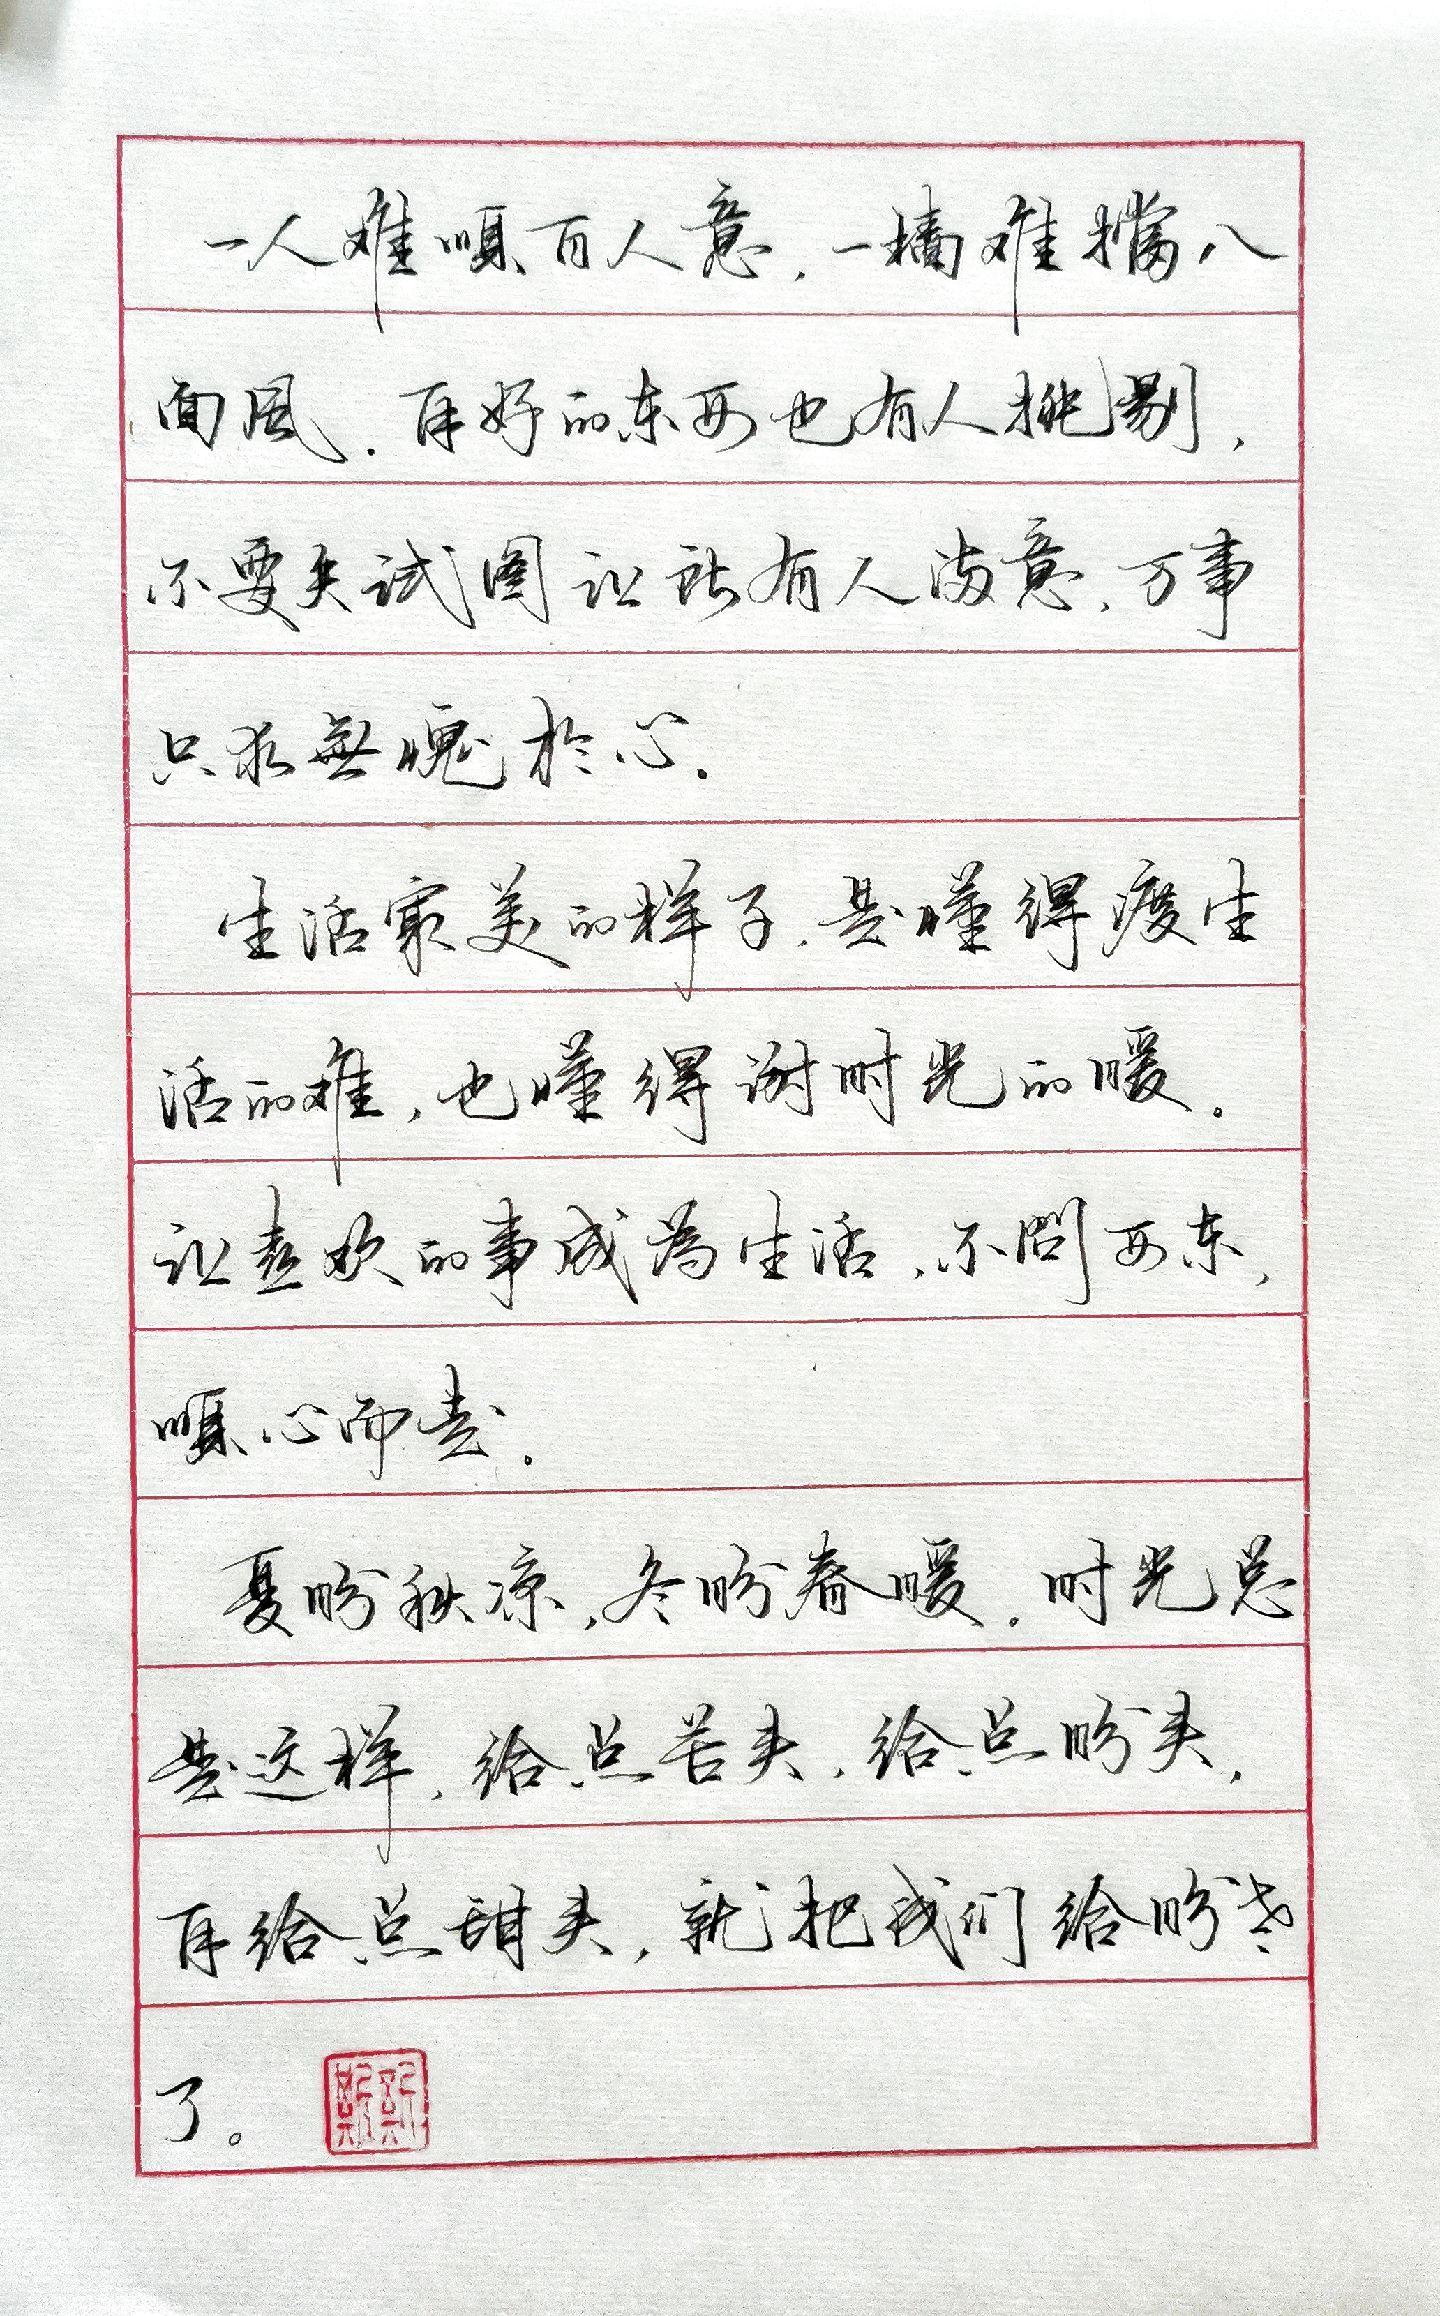 一人难順百人意，一墙难擋八
面風．再好的东西也有人挑剔，
不要失试图让所有人满意，万事
只求無愧於心．
生活最美的样子，是懂得渡生
活的难，也懂得谢时光的暖．
让喜欢的事成為生活，不問西东，
順心而走．
夏盼秋凉，冬盼春暖．时光总
是这样，给点苦头，给点盼头，
再给点甜头，就把我们给盼老
了。